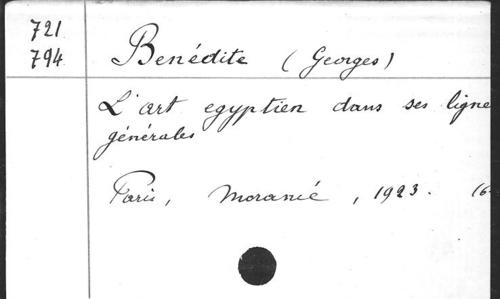 721
794
Benédite (Georges)
L'art egyptien dans ses ligne
générales
Paris, Morancé, 1923. (6-